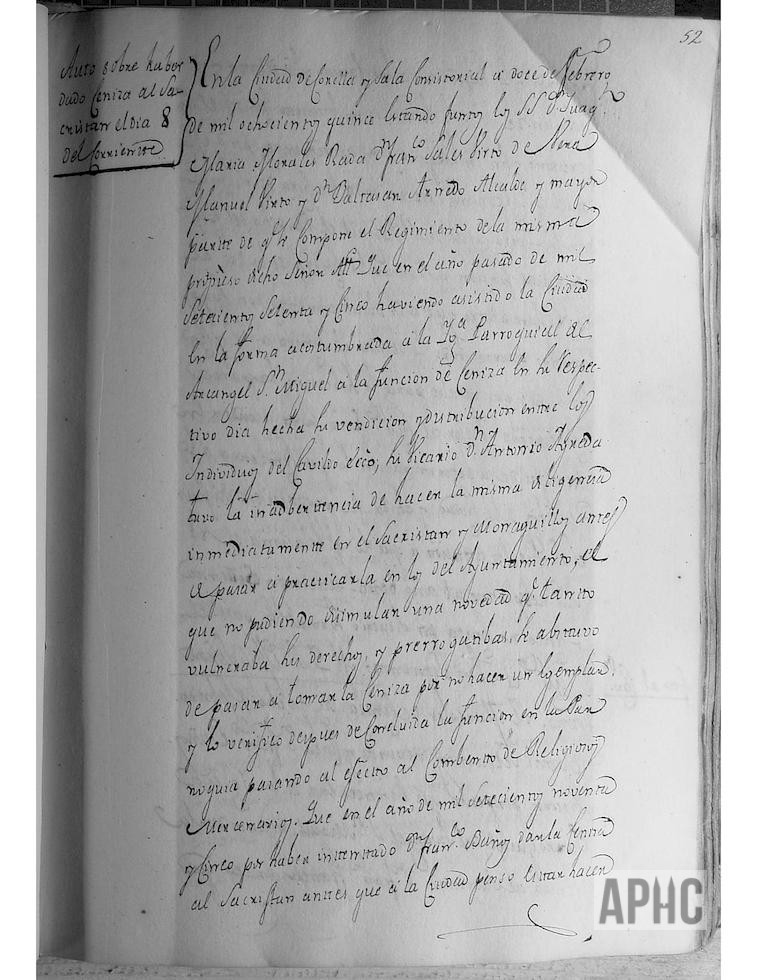 52
Auto sobre haber
dado Ceniza al Sa-
cristan el dia 8
del Corriente
En la Ciudad de Corella y Sala Consistorial a doce de Febrero
de mil ochocientos quince estando juntos los SS. Dn Juaqn
Maria Morales Rada Dn Franco Sales Virto de Vera
Manuel Virto y Dn Baltasar Arnedo Alcalde y mayor
parte de qe se Compone el Regimiento de la misma
propuso dicho Señor Alle Que en el año pasado de mil
Setecientos Setenta y Cinco haviendo asistido la Ciudad
en la forma acostumbrada a la Yga Parroquial del
Arcangel Sn Miguel a la funcion de Ceniza en su respec-
tivo dia hecha su vendicion y distribucion entre los
Individuos del Cavildo Ecco, su Vicario Dn Antonio
tuvo la inadbertencia de hacer la misma diligencia
inmediatamente en el Sacristan y Monaguillos antes
de pasar a practicarla en los del Ayuntamiento, el
que no pudiendo disimular una novedad qe tanto
vulneraba sus derechos, y prerrogatibas, se abstuvo
de pasar a tomar la Ceniza por no hacer un Egemplar,
y lo verificó despues de Concluida la funcion en la Par
roquia pasando al efecto al Combento de Religiosos
Mercenarios. Que en el año de mil Setecientos noventa
y Cinco por haber intentado Dn Franco dar la Ceniza
al Sacristan antes que a la Ciudad penso estar hacer
APHC